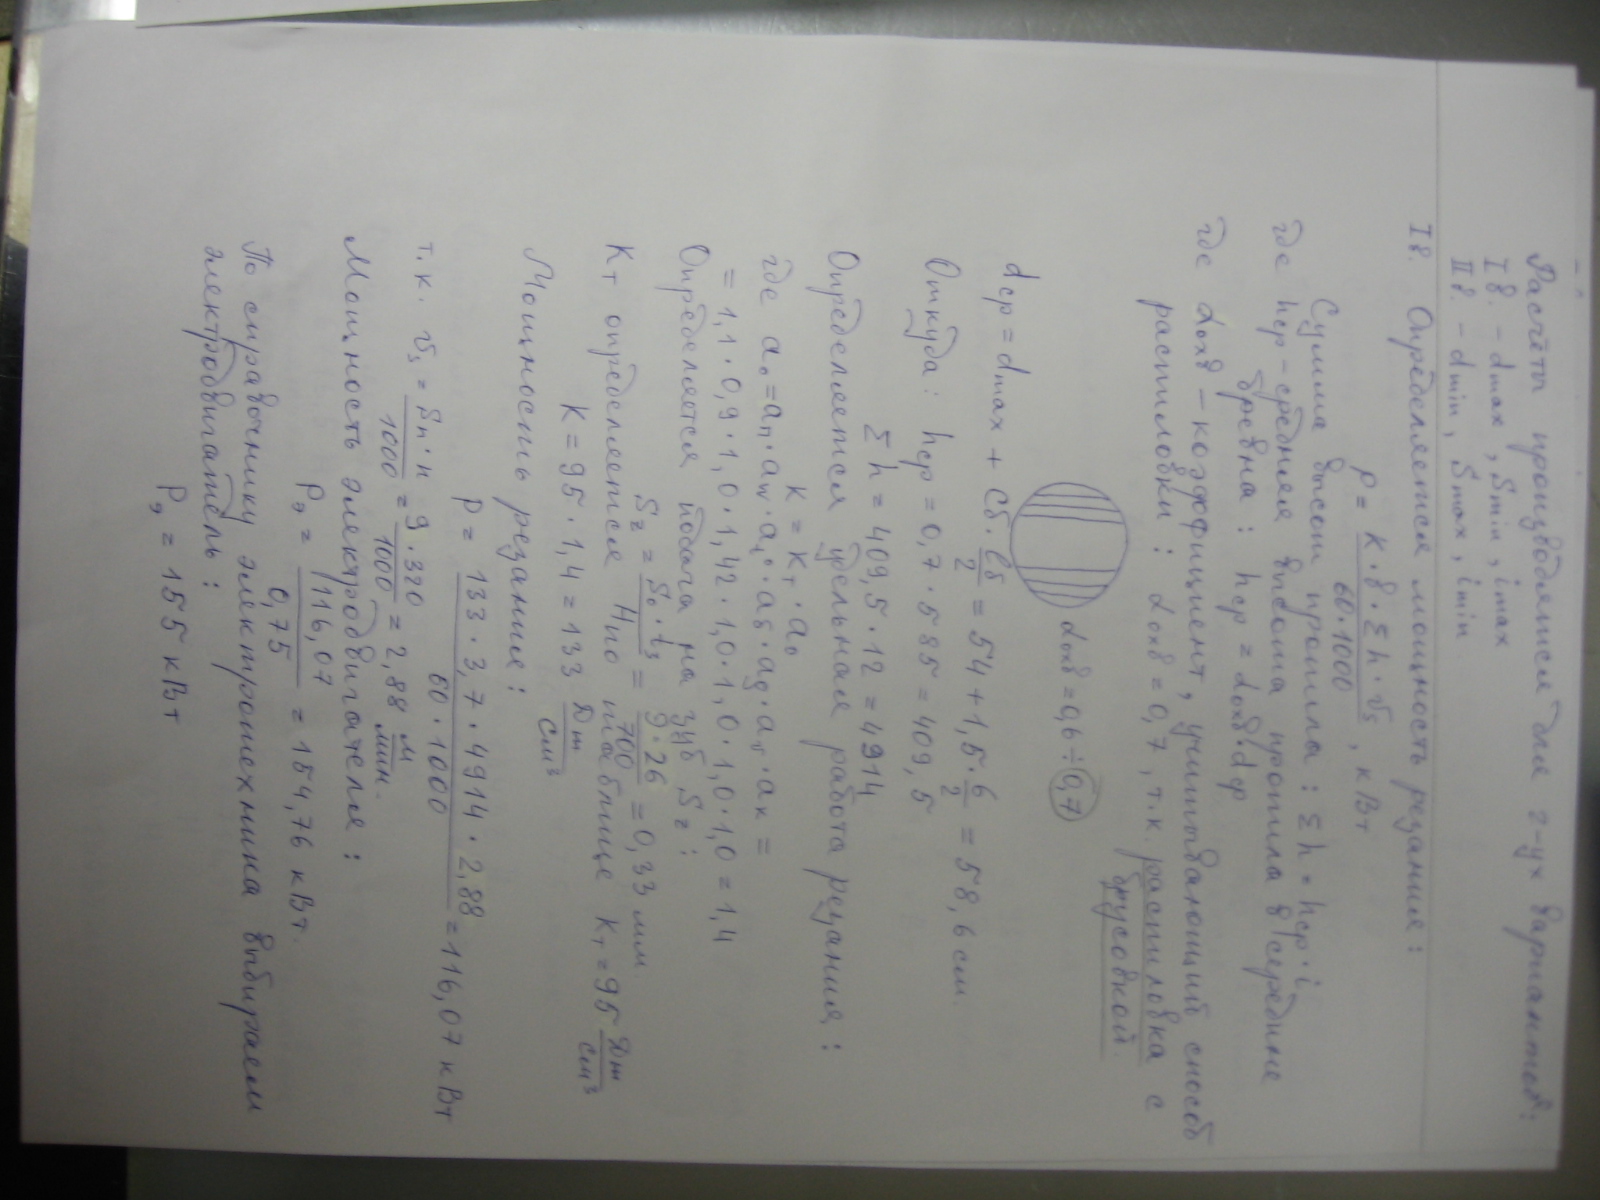 Расчёты производятся для 2-ух вариантов:
I в. – dmax, Smin, imax
II в. – dmin, Smax, imin
I в. Определяется мощность резания:
P = K · b · Σh · υs / 60·1000, кВт
Сумма высот пропила: Σh = hср · i
где hср – средняя высота пропила в середине
бревна: hср = αохв · dср
где αохв – коэффициент, учитывающий способ
распиловки: αохв = 0,7, т.к. распиловка с
брусовкой.
αохв = 0,6 ÷ 0,7
dср = dmax + сб · lб/2 = 54 + 1,5 · 6/2 = 58,6 см
Откуда: hср = 0,7 · 585 = 409,5
Σh = 409,5 · 12 = 4914
Определяется удельная работа резания:
K = Kт · a₀
где a₀ = aп · aw · aφ · aδ · ag · aυ · aк =
= 1,1 · 0,9 · 1,0 · 1,42 · 1,0 · 1,0 · 1,0 · 1,0 = 1,4
Определяется подача на зуб Sz:
Sz = S₀ · tз / Hпо = 9 · 26 / 700 = 0,33 мм
Kт определяется по таблице Kт = 95 Дж/см³
K = 95 · 1,4 = 133 Дж/см³
Мощность резания:
P = 133 · 3,7 · 4914 · 2,88 / 60 · 1000 = 116,07 кВт
т.к. υs = Sп · n / 1000 = 9 · 320 / 1000 = 2,88 м/мин.
Мощность электродвигателя:
Pэ = 116,07 / 0,75 = 154,76 кВт.
По справочнику электротехника выбираем
электродвигатель:
Pэ = 155 кВт